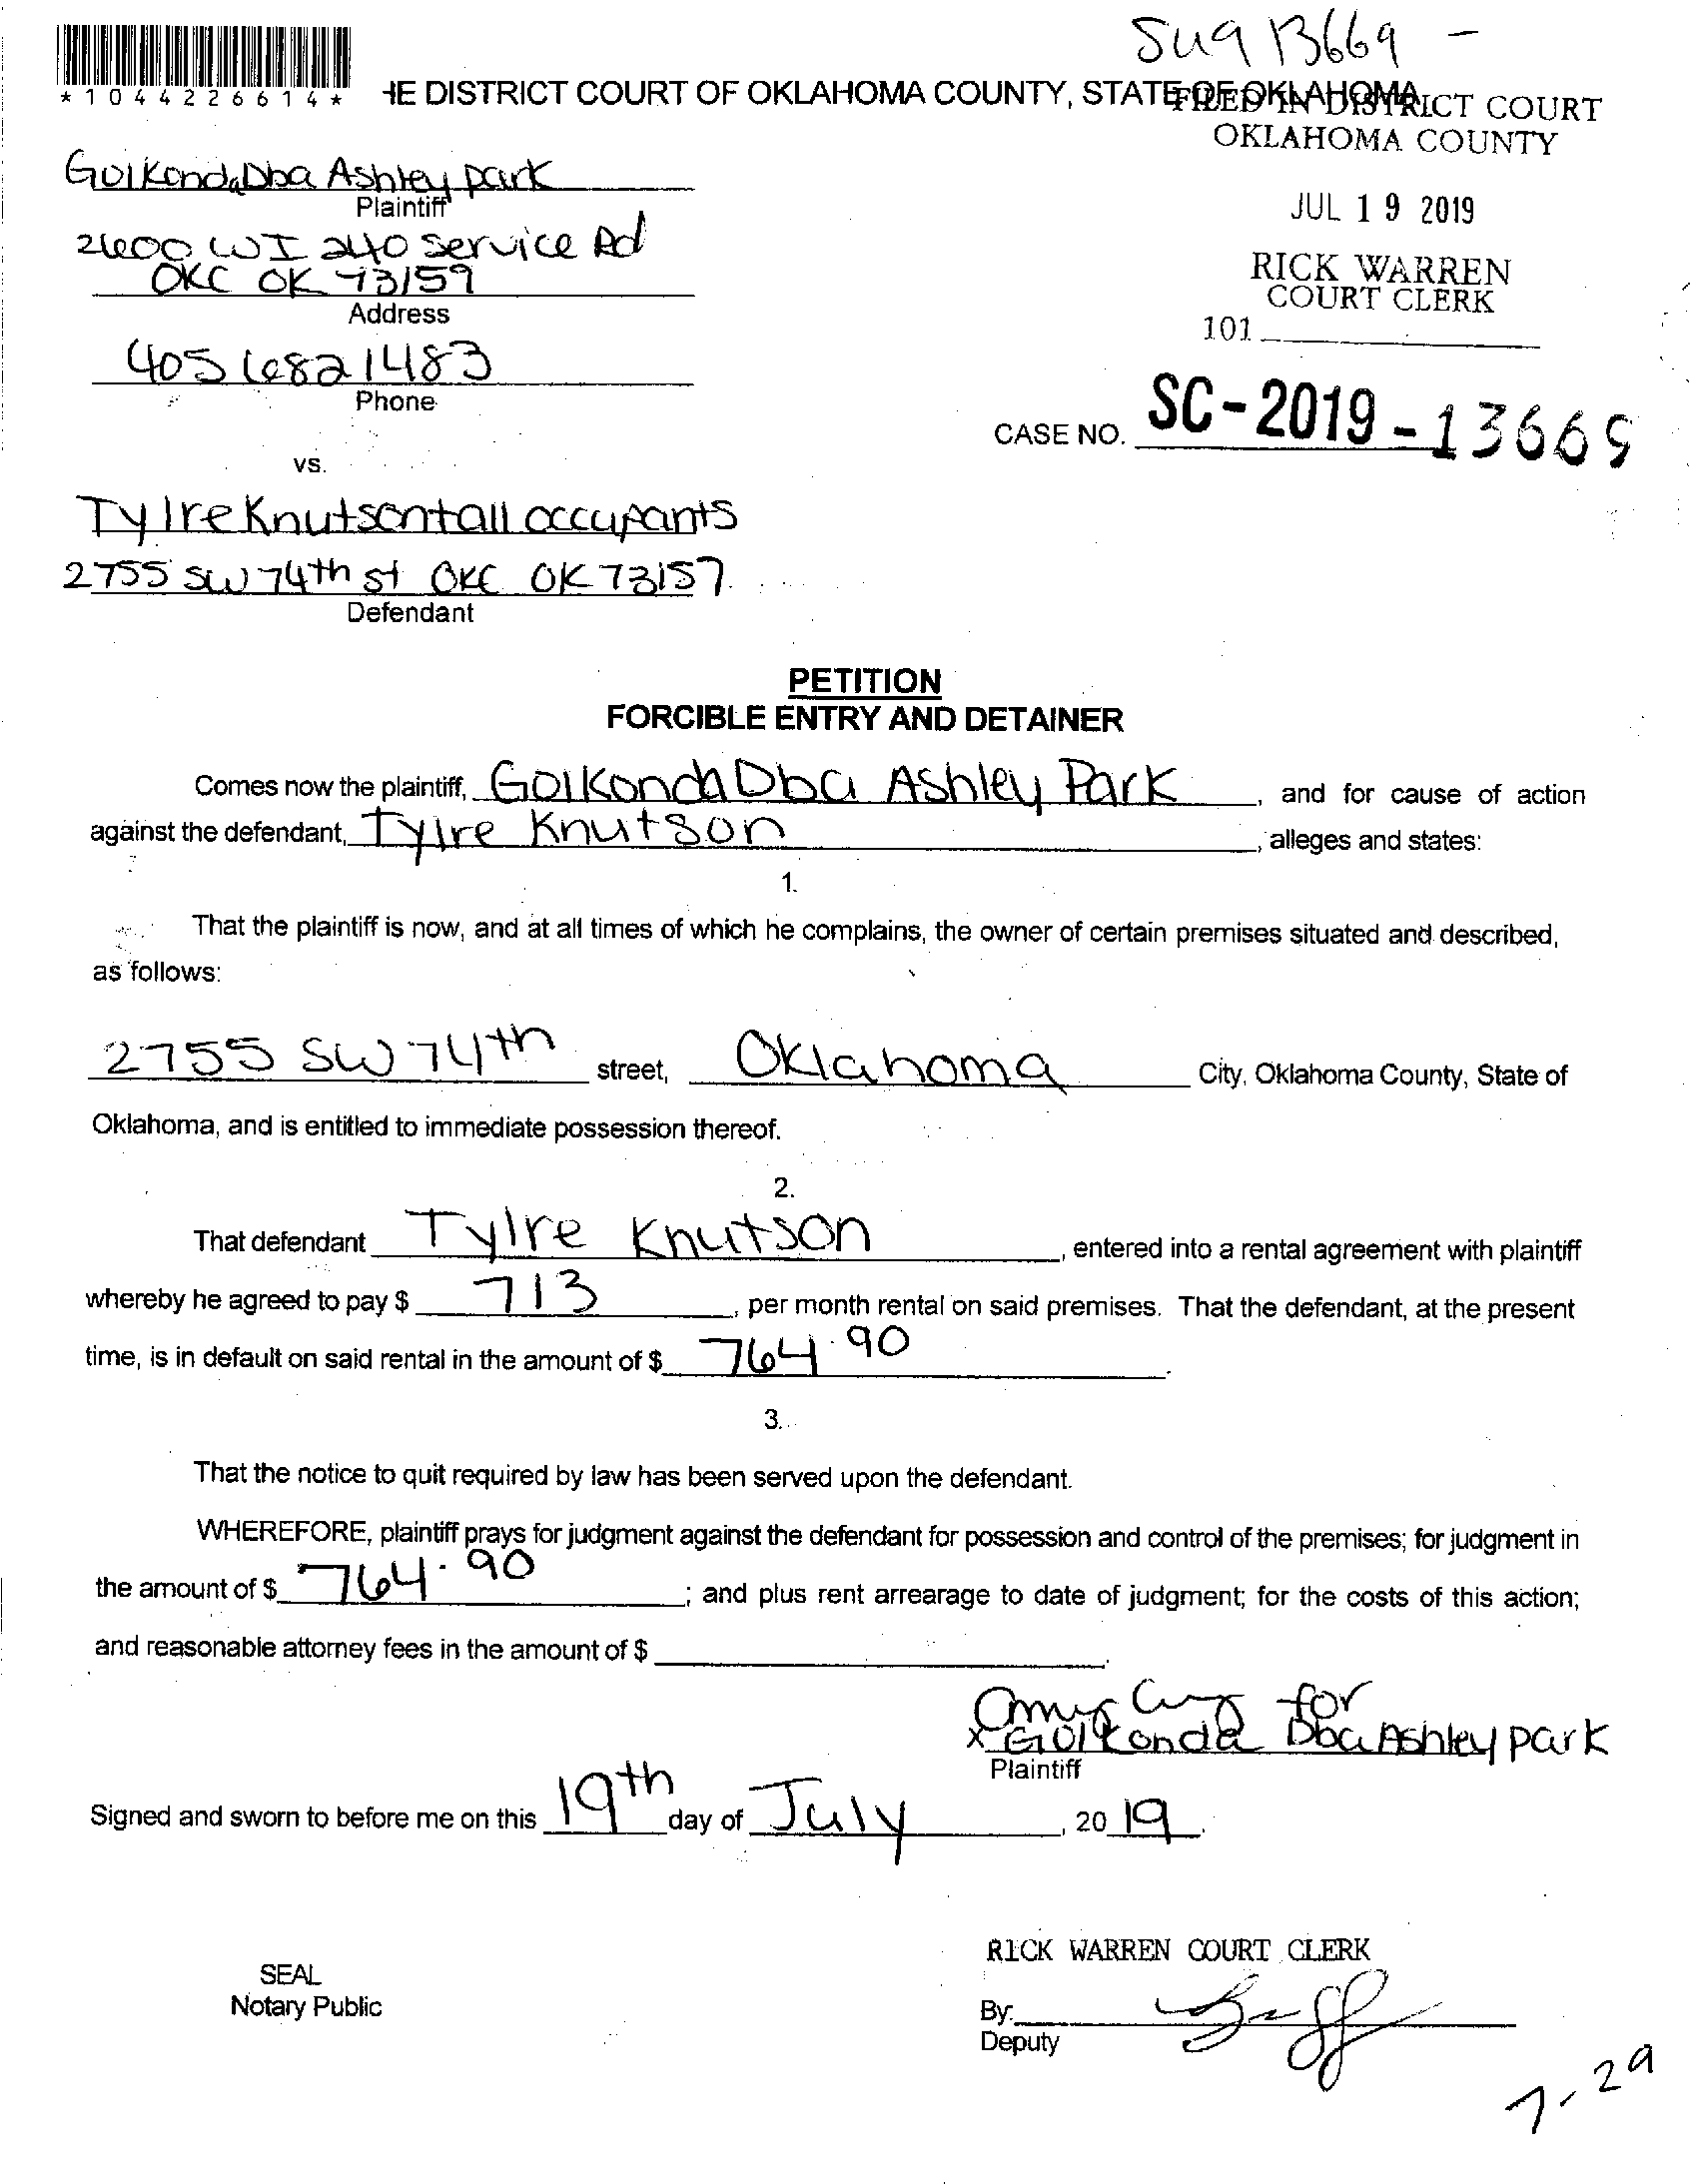 Sug 13669 -
*1044226614*
HE DISTRICT COURT OF OKLAHOMA COUNTY, STATE OF OKLAHOMA
FILED IN DISTRICT COURT
OKLAHOMA COUNTY
Golkonda Dba Ashley park
Plaintiff
JUL 19 2019
2600 W I 240 service Rd
OKC OK 73159
Address
RICK WARREN
COURT CLERK
101
405 682 1483
Phone
CASE NO. SC-2019-13669
vs.
Tylre Knutson + all occupants
2755 SW 74th st OKC OK 73157
Defendant
PETITION
FORCIBLE ENTRY AND DETAINER
Comes now the plaintiff, Golkonda Dba Ashley Park, and for cause of action
against the defendant, Tylre Knutson, alleges and states:
1.
That the plaintiff is now, and at all times of which he complains, the owner of certain premises situated and described,
as follows:
2755 SW 74th street, Oklahoma City, Oklahoma County, State of
Oklahoma, and is entitled to immediate possession thereof.
2.
That defendant Tylre Knutson, entered into a rental agreement with plaintiff
whereby he agreed to pay $ 713, per month rental on said premises. That the defendant, at the present
time, is in default on said rental in the amount of $ 764.90.
3.
That the notice to quit required by law has been served upon the defendant.
WHEREFORE, plaintiff prays for judgment against the defendant for possession and control of the premises; for judgment in
the amount of $ 764.90; and plus rent arrearage to date of judgment; for the costs of this action;
and reasonable attorney fees in the amount of $
for
x Golkonda Dba Ashley park
Plaintiff
Signed and sworn to before me on this 19th day of July, 20 19.
RICK WARREN COURT CLERK
SEAL
Notary Public
By:
Deputy
7-29